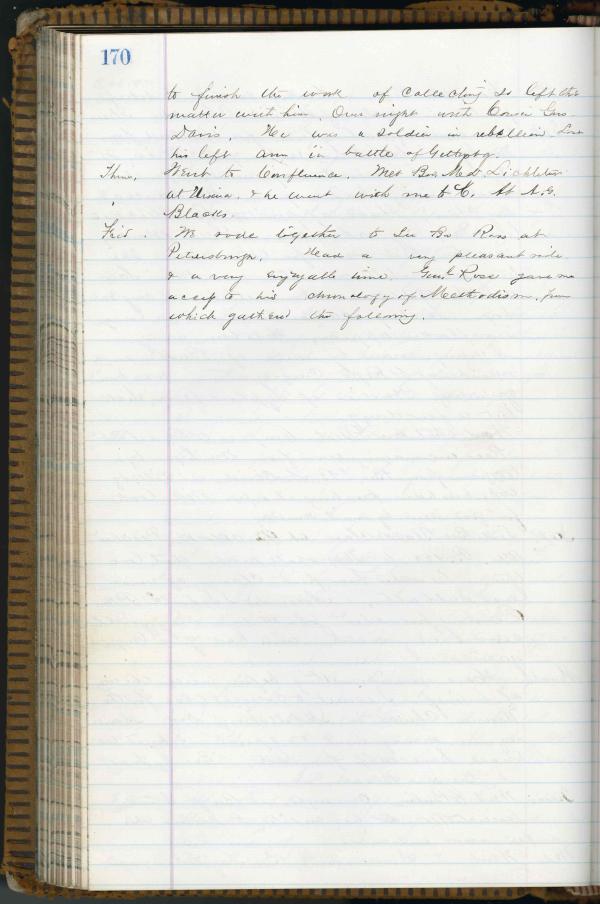 170
to finish the work of collecting so left the
matter with him. Over night with Cousin Geo.
Davis. He was a soldier in rebellion Lost
his left arm in battle of Gettysbg.
Thurs. Went to Confluence. Met Bro. McL Lichliter
at Ursina. & he went with me to C. At A. G.
Blacks.
Frid. We rode together to See Bro Ross at
Petersburgh. Had a very pleasant ride
& a very enjoyable time. Ross gave me
access to his chronology of Methodism, from
which gathered the following.